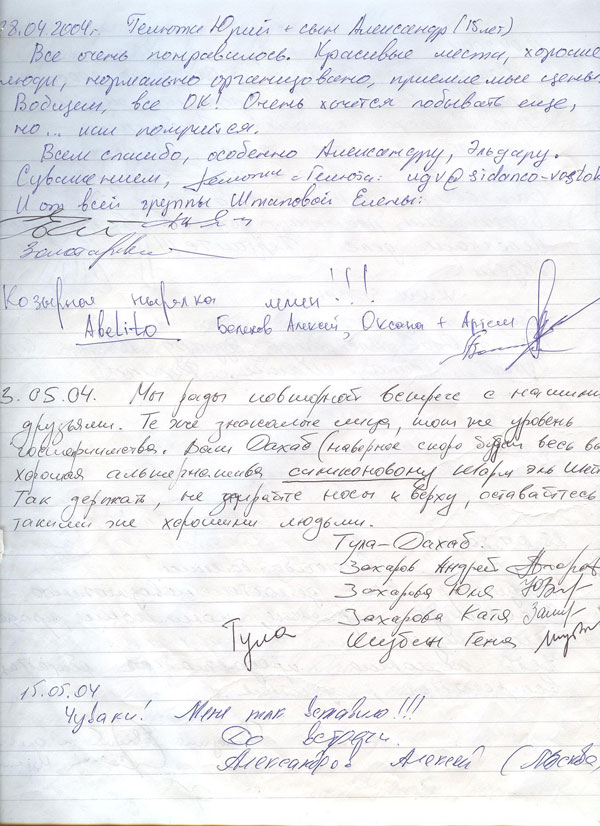 8.04.2004г. Телюта Юрий + сын Александр (15 лет)
Все очень понравилось. Красивые места, хорошие
люди, нормально организовано, приемлемые цены.
Вобщем, все ОК! Очень хочется побывать еще,
но... как получится.
Всем спасибо, особенно Александру, Эльдару.
С уважением, Телюта: ugv@sidanco-vostok
И от всей группы Штаповой Елены:
Козырная нырялка
Abelito Алексей, Оксана + Артем
3.05.04. Мы рады повторной встрече с нашими
друзьями. Те же знакомые лица, тот же уровень
гостеприимства. Ваш Дахаб (наверное скоро будет весь ва
хорошая альтернатива силиконовому Шарм эль Шей
Так держать, не задирайте носы к верху, оставайтесь
такими же хорошими людьми.
Тула-Дахаб.
Захаров Андрей
Захарова Юля
Захарова Катя
Тула Гена
15.05.04
Чуваки! Меня так вставило!!!
До встречи.
Александров Алексей (Москва)